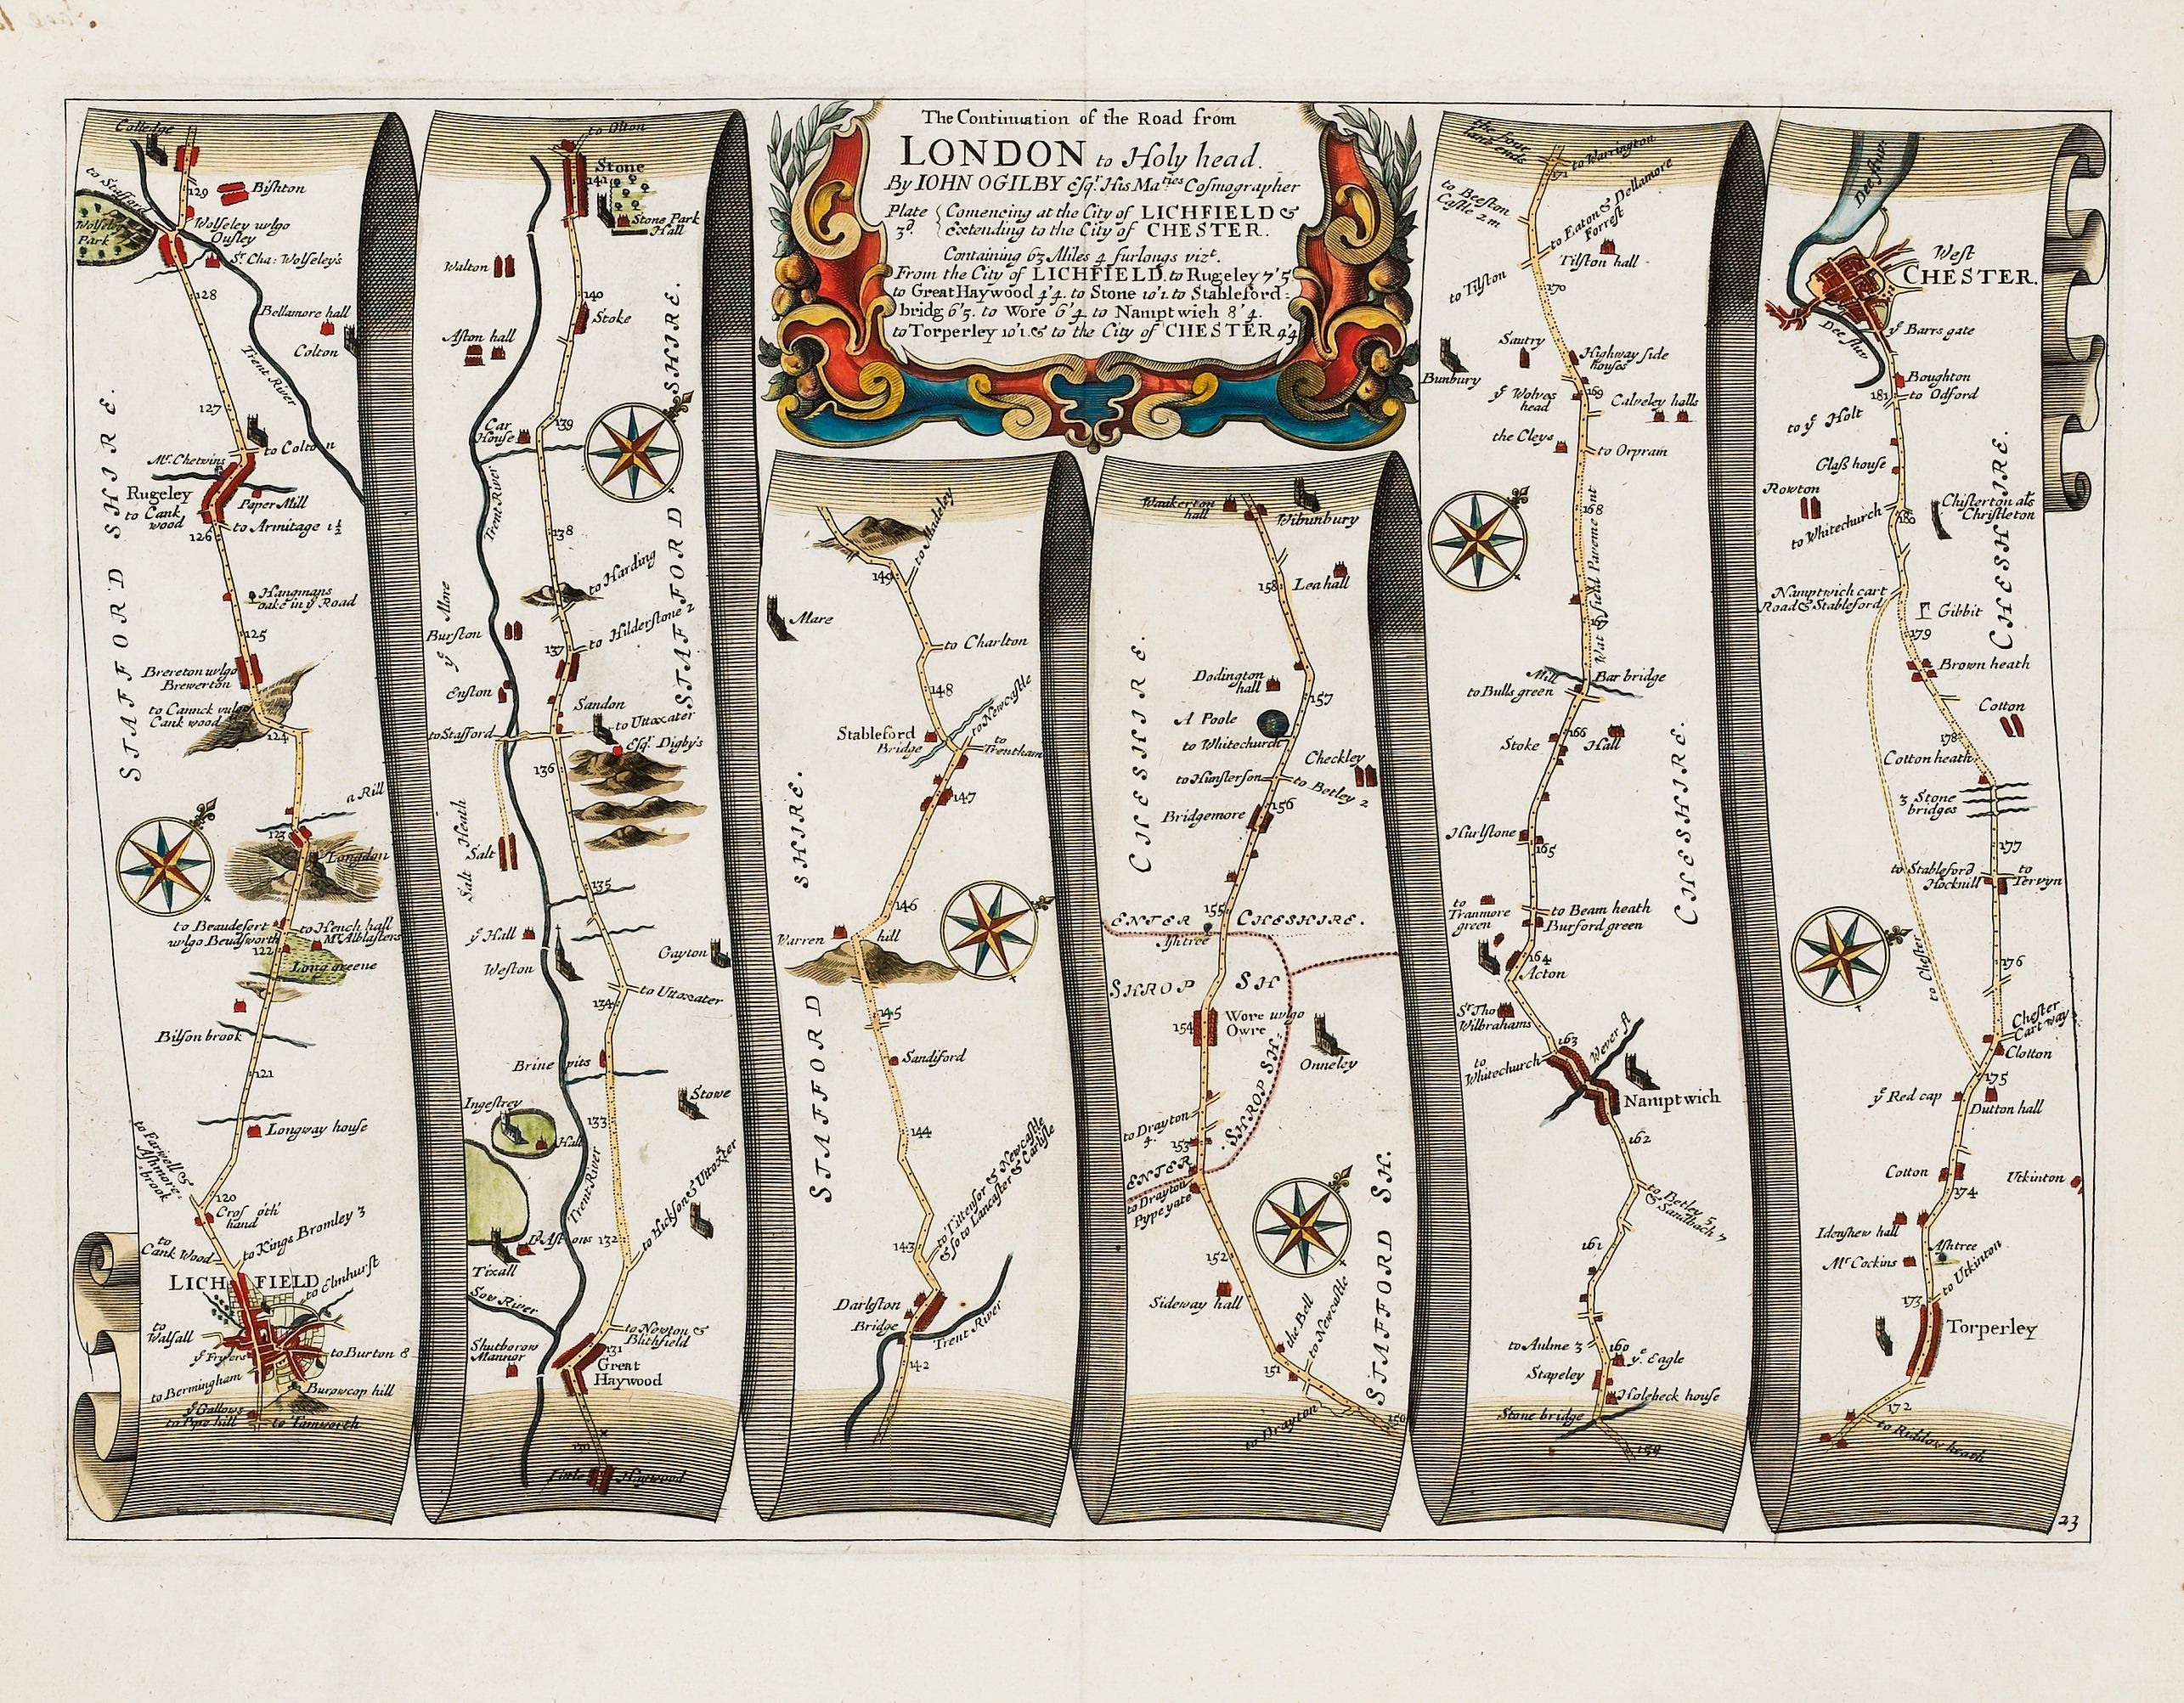 The Continuation of the Road from
LONDON to Holy head.
By IOHN OGILBY Esqr. His Maties Cosmographer
Plate 3d. Comencing at the City of LICHFIELD &
Extending to the City of CHESTER.
Containing 63 Miles 4 furlongs vizt.
From the City of LICHFIELD. to Rugeley 7'5
to Great Haywood 4'4. to Stone 10'1. to Stableford-
bridg 6'5. to Wore 6'4 to Namptwich 8'4.
to Torperley 10'1. & to the City of CHESTER 9'4
Colledge
129
Bishton
to Stafford
Wolseley Park
Wolseley vulgo Ousley
Sr. Cha: Wolseley's
128
Bellamore hall
Colton
Trent River
127
to Colton
Mr. Chetwins
Rugeley
Paper Mill
to Cank wood
to Armitage 1½
126
Hangmans oake in ye Road
125
STAFFORD SHIRE.
Brereton vulgo Brewerton
to Cannck vulgo Cank wood
124
a Rill
123
Longdon
to Beaudesert vulgo Beudsworth
to Hench hall
Mr. Alblasters
122
Long greene
Bilson brook
121
Longway house
to Farwell & Ashmore brook
120
Cros o'th' hand
to Cank Wood
to Kings Bromley 3
LICHFIELD
to Elmhurst
to Walsall
ye Fryers
to Burton 8
to Bermingham
Burowcop hill
ye Gallows
to Pipe hill
to Tamworth
to Olton
Stone
141
Stone Park Hall
Walton
140
Stoke
Aston hall
139
Car House
Trent River
138
to Harding
ye More
Burston
to Hilderstone 2
137
Enston
Sandon
to Stafford
to Uttoxater
Esqr. Digby's
136
STAFFORD SHIRE.
Salt Heath
Salt
135
ye Hall
Weston
Gayton
134
to Uttoxater
Brine pits
Stowe
133
Ingestrey
Hall
Trent River
to Hickson & Uttoxter
132
Tixall
Sow River
to Newton & Blithfield
131
Shutborow Mannor
Great Haywood
130
Little Haywood
to Madeley
149
Mare
to Charlton
148
to Newcastle
Stableford Bridge
to Trentham
147
146
Warren hill
145
STAFFORD SHIRE.
Sandiford
144
to Tittensor & Newcastle & so to Lancaster & Carlysle
143
Darlston Bridge
Trent River
142
Waukerton hall
Wibunbury
158
Lea hall
Dodington hall
157
A Poole
to Whitechurch
Checkley
to Hunsterson
to Betley 2
156
Bridgemore
CHESHIRE.
155
ENTER CHESHIRE.
Ashtree
SHROP SH
154
Wore vulgo Owre
Onneley
SHROP SH.
to Drayton 4
153
ENTER
to Drayton
Pype gate
152
Sideway hall
the Bell
to Newcastle
151
STAFFORD SH.
to Drayton
150
the four lane ends
to Warrington
171
to Beeston Castle 2 m
to Eaton & Dellamore Forrest
Tilston hall
to Tilston
170
Sautry
Highway side houses
Bunbury
ye Wolves head
169
Calveley halls
the Cleys
to Orpram
168
Wat field Pavement
Mill
Bar bridge
to Bulls green
166
Stoke
Hall
Hurlstone
165
CHESHIRE.
to Tranmore green
to Beam heath
Burford green
164
Acton
Sr. Tho Wilbrahams
163
Wever R
to Whitechurch
Namptwich
162
to Betley 5, & Sandbach 7
161
to Aulme 3
160
ye. Eagle
Stapeley
Holebeck house
Stone bridge
159
Dee fluv
West CHESTER.
Dee fluv
ye Barrs gate
Boughton
181
to Odford
to ye Holt
Glass house
Rowton
Chisterton als Christleton
to Whitechurch
180
Namptwich cart Road & Stableford
Gibbit
179
CHESHIRE.
Brown heath
Cotton
178
Cotton heath
3 Stone bridges
177
to Stableford
Hocknill
to Tervyn
to Chester
176
Chester Cart way
Clotton
175
ye Red cap
Dutton hall
Cotton
Utkinton
174
Idenshew hall
Ashtree
Mr. Cockins
to Utkinton
173
Torperley
172
to Riddow heath
23